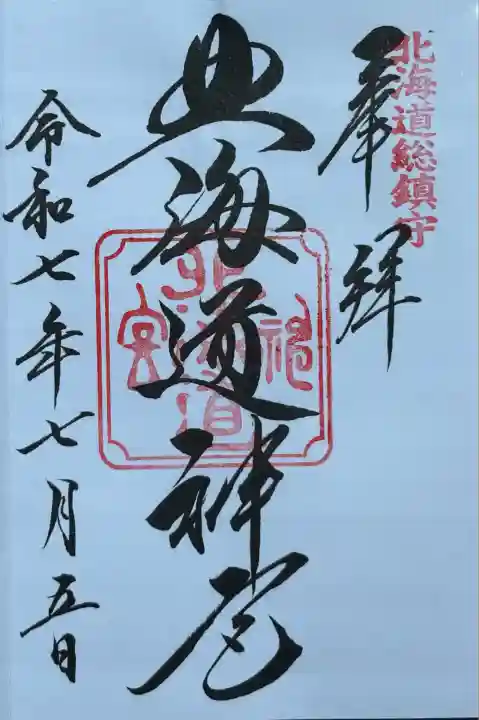 北海道総鎮守
奉拝
北海道神宮
北海道神宮
令和七年七月五日